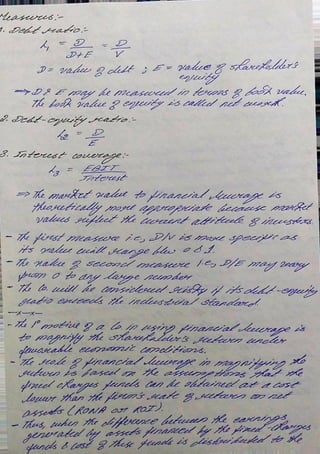 Measures:-
1. Debt ratio:-
L1 = D/D+E = D/V
D = value of debt ; E = value of shareholder's
equity
→ D & E may be measured in terms of book value.
The book value of equity is called net worth.
2. Debt-equity ratio:-
L2 = D/E
3. Interest coverage:-
L3 = EBIT/Interest
⇒ The market value to financial leverage is
theoretically more appropriate because market
values reflect the current attitude of investors.
- The first measure i.e., D/V is more specific as
its value will range b/w 0 to 1.
- The value of second measure i.e., D/E may vary
from 0 to any large number
- The Co. will be considered risky if its debt-equity
ratio exceeds the industrial standard
—x—x—
- The 1° motive of a Co in using financial leverage is
to magnify the shareholder's return under
favourable economic conditions.
- The role of financial leverage in magnifying the
return is based on the assumptions that the
fixed charges funds can be obtained at a cost
lower than the firm's rate of return on net
assets (RONA or ROI).
- Thus, when the difference between the earnings
generated by assets financed by the fixed charges
funds & cost of these funds is distributed to the